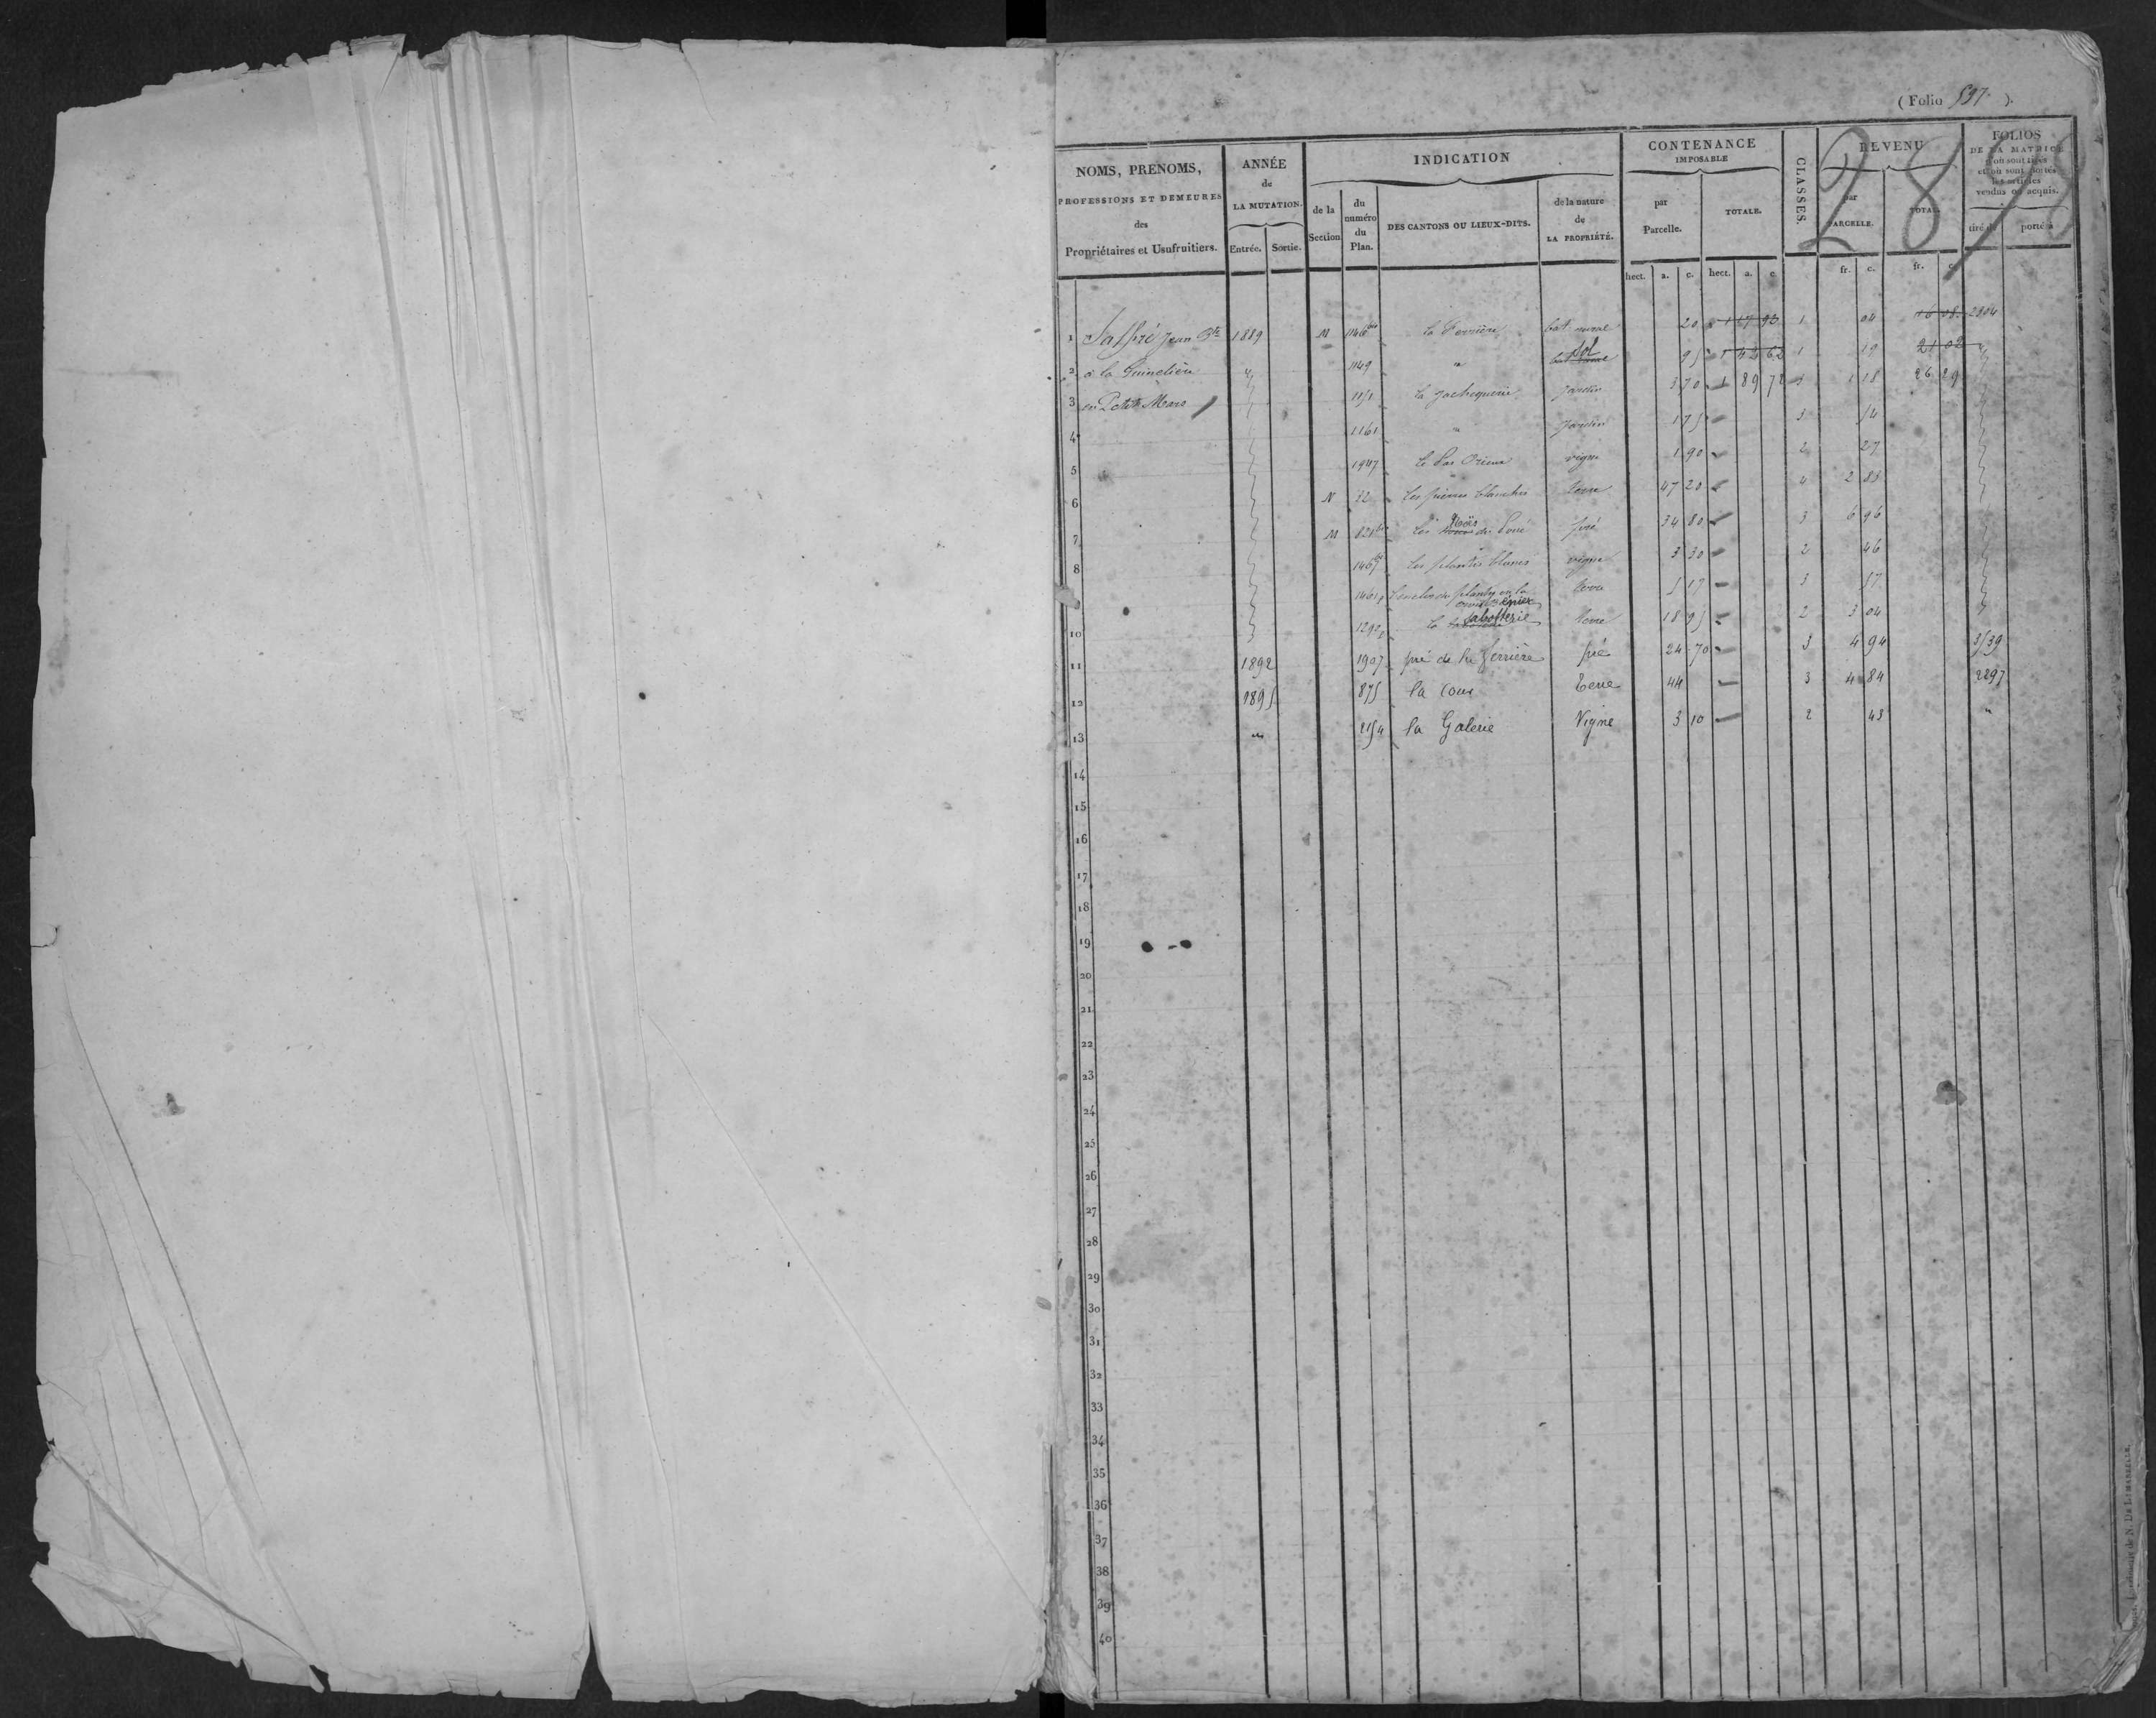 ( Folio 597 ).
2818
NOMS, PRENOMS, PROFESSIONS ET DEMEURES des Propriétaires et Usufruitiers.
ANNÉE de LA MUTATION. Entrée. Sortie.
INDICATION
de la Section du numéro du Plan. DES CANTONS OU LIEUX-DITS. de la nature de LA PROPRIÉTÉ.
CONTENANCE IMPOSABLE
par Parcelle. TOTALE.
CLASSES.
REVENU
par PARCELLE. TOTAL.
FOLIOS DE LA MATRICE d'où sont tirés et où sont portés les articles vendus ou acquis.
tiré de porté à
hect. a. c. hect. a. c. fr. c. fr. c.
1 Saffré Jean Bte 1889 M 1146 bis La Ferrière bat. rural 20 1 47 92 1 04 16 08 2804
2 à la 1149 " sol 95 1 42 62 1 19 21 02 "
3 en Petit Mars 1151 jardin 3 70 1 89 72 3 1 18 26 29 "
4 1161 " jardin 1 75 3 54 "
5 1947 Le Pas vigne 1 90 2 27 "
6 N 82 Les pierres blanches terre 47 20 4 2 83 "
7 M 821 Les Noës de pré 34 80 3 6 96 "
8 1467 Les plantis blancs vigne 3 30 2 46 "
9 L'enclos du planty ou la terre 5 17 3 57 "
10 1290 La Sabotterie terre 18 95 2 3 04 "
11 1892 1907 pré de la ferrière pré 24 70 3 4 94 3539
12 1895 875 la Cour Terre 44 3 4 84 2297
13 " 2154 la Galerie Vigne 3 10 2 43 "
14
15
16
17
18
19
20
21
22
23
24
25
26
27
28
29
30
31
32
33
34
35
36
37
38
39
40